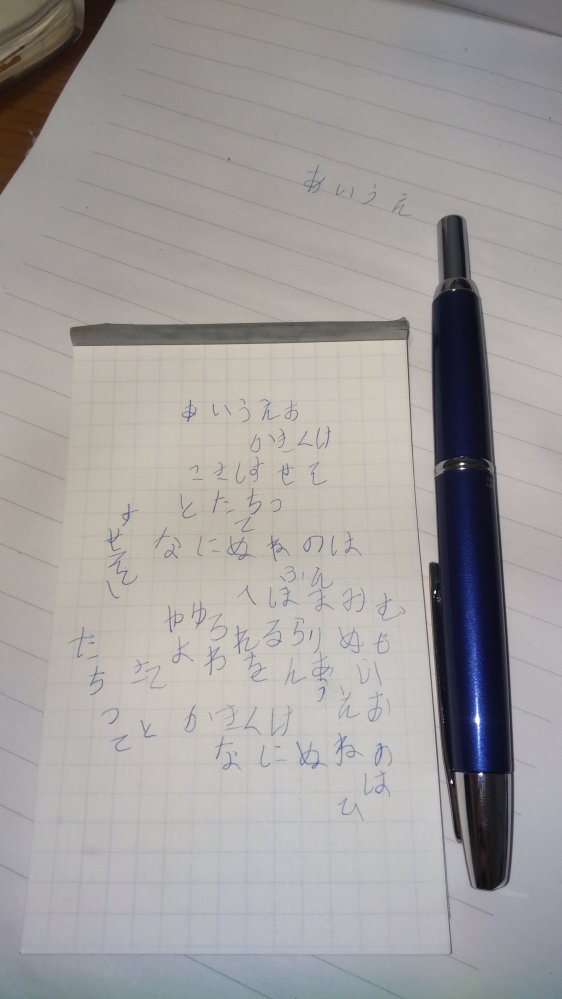 あいうえ
あいうえお
かきくけ
こさしすせそ
とたちつ
て
なにぬねのは
ふん
へほまみむ
やゆろれるらりぬも
よわをんあい
うえお
かきくけ
なにぬねの
は
ひ
すせそ
たちつてと